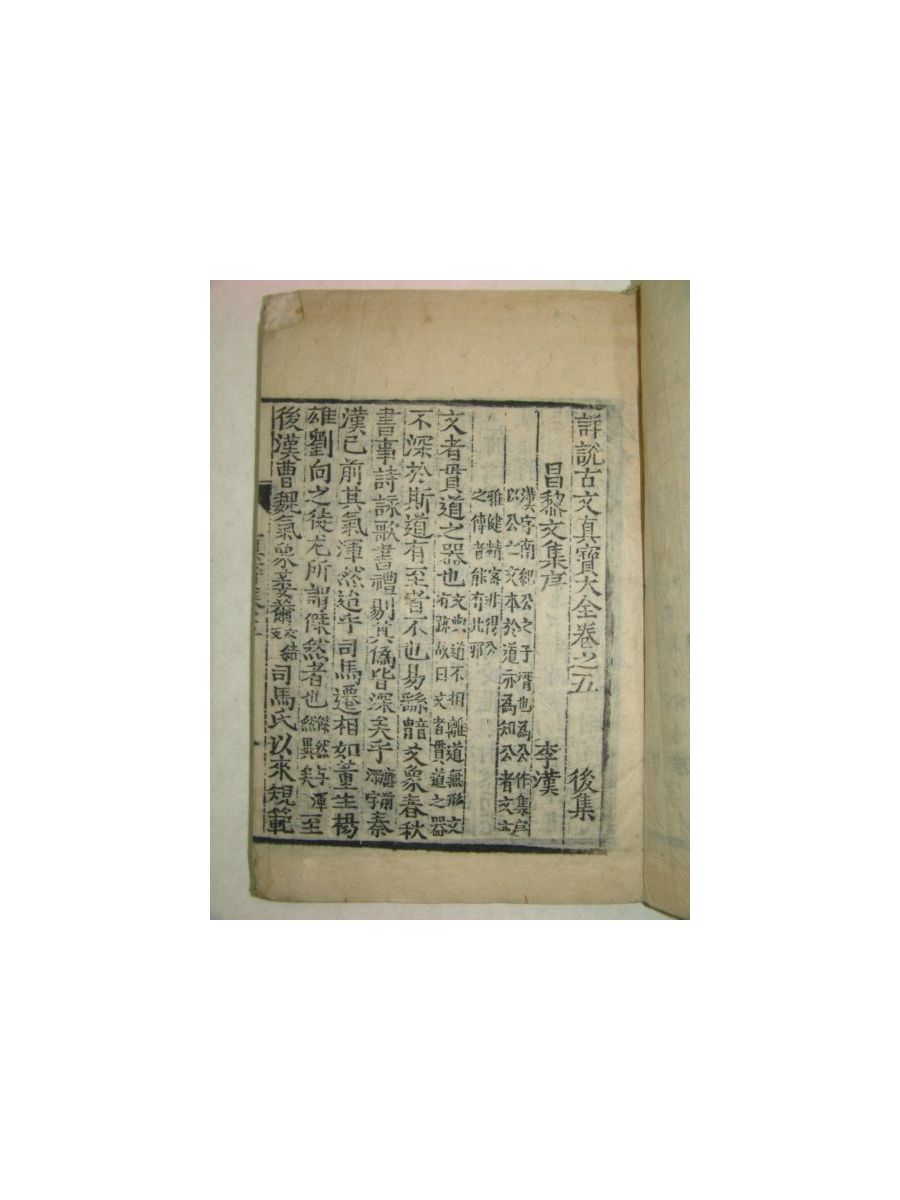 詳說古文真寶大全卷之五 後集
昌黎文集序 李漢
漢字南紀公之子壻也為公作集序
以公之文本於道亦為知公者文亦
雅健精密非得公
之傳者能有此耶
文者貫道之器也 文與道不相離道無形文
有跡故曰文者貫道之器
不深於斯道有至者不也易繇爻象春秋
書事詩詠歌書禮剔其偽皆深矣乎 應前
深字 秦
漢已前其氣渾然迨乎司馬遷相如董生楊
雄劉向之徒尤所謂傑然者也 傑然与渾
然異矣 至
後漢曹魏氣象萎薾 司馬氏以來規範